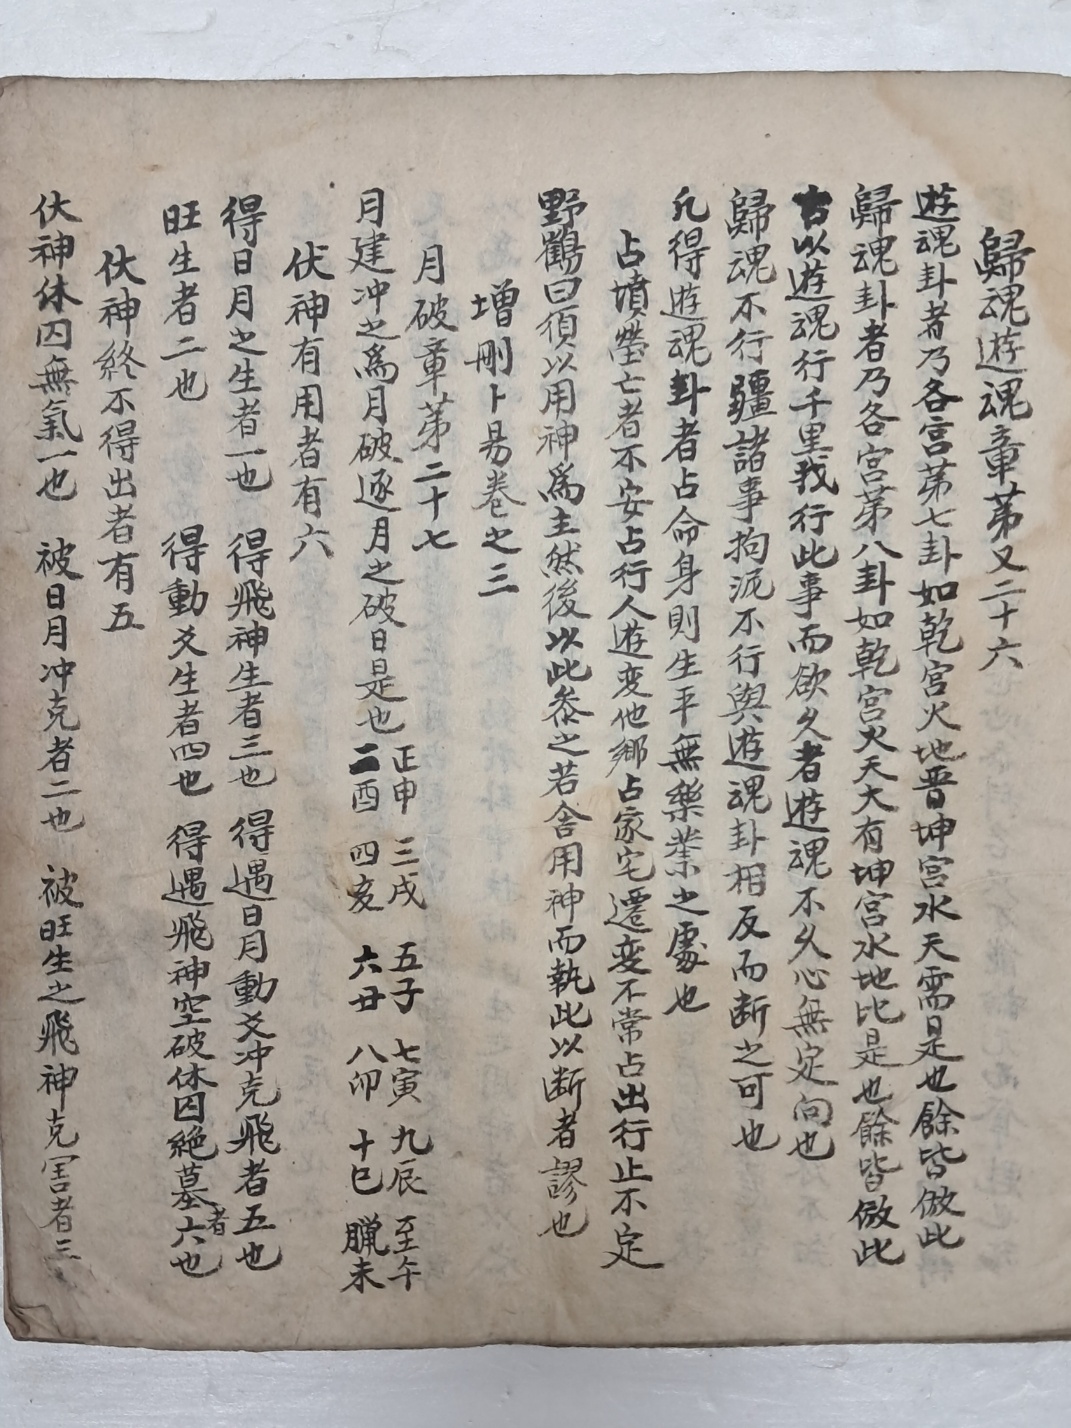 歸魂遊魂章苐又二十六
遊魂卦者乃各宮苐七卦如乾宮火地晉坤宮水天需是也餘皆倣此
歸魂卦者乃各宮苐八卦如乾宮火天大有坤宮水地比是也餘皆倣此
古以遊魂行千里我行此事而欲久者遊魂不久心無定向也
歸魂不行疆諸事拘泥不行與遊魂卦相反而断之可也
凡得遊魂卦者占命身則生平無樂業之處也
占墳塋亡者不安占行人遊变他鄉占家宅遷变不常占出行止不定
野鶴曰須以用神爲主然後以此叅之若舍用神而執此以断者謬也
增刪卜易卷之三
月破章苐二十七
月建冲之爲月破逐月之破日是也 正申 三戌 五子 七寅 九辰 至午
二酉 四亥 六丑 八卯 十巳 臘未
伏神有用者有六
得日月之生者一也 得飛神生者三也 得遇日月動爻冲克飛者五也
旺生者二也 得動爻生者四也 得遇飛神空破休囚絶墓者六也
伏神終不得出者有五
伏神休囚無氣一也 被日月冲克者二也 被旺生之飛神克害者三